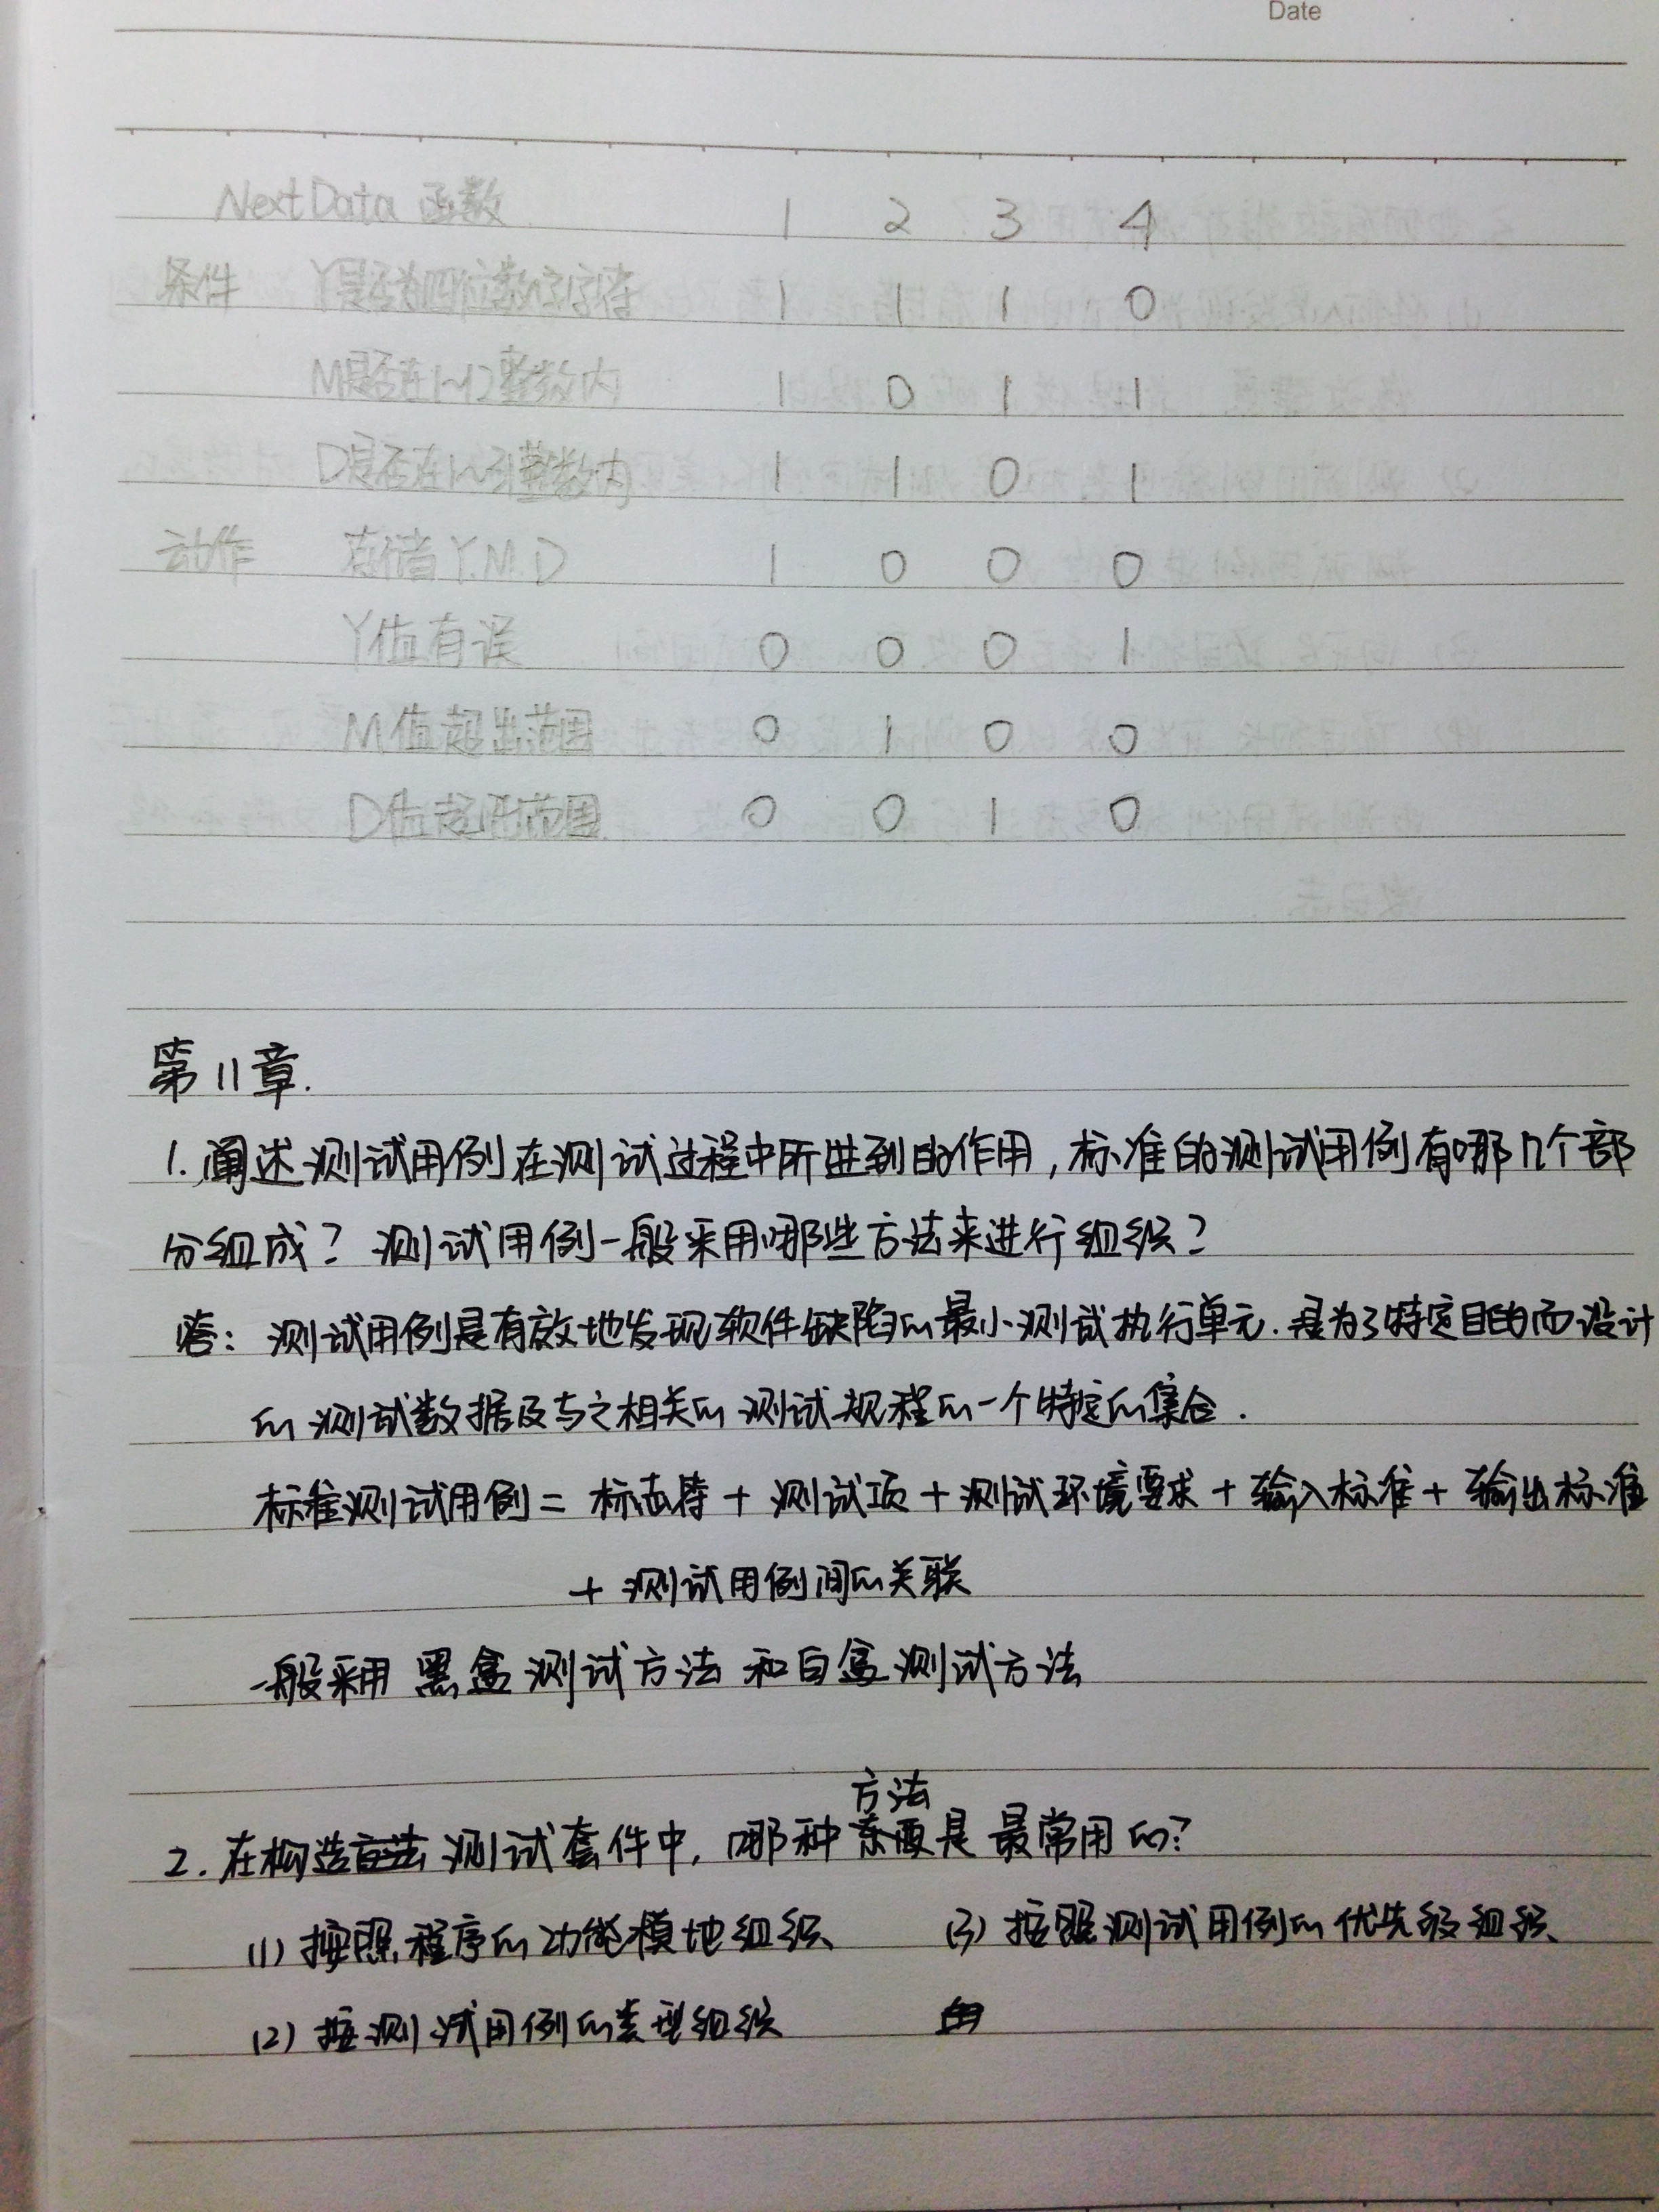 Date
NextData 函数 1 2 3 4
条件 Y是否为四位数字字符 1 1 1 0
M是否在1~12整数内 1 0 1 1
D是否在1~31整数内 1 1 0 1
动作 存储Y.M.D 1 0 0 0
Y值有误 0 0 0 1
M值超出范围 0 1 0 0
D值超出范围 0 0 1 0
第11章.
1.阐述测试用例在测试过程中所进到的作用,标准的测试用例有哪几个部
分组成?测试用例一般采用哪些方法来进行组织?
答: 测试用例是有效地发现软件缺陷的最小测试执行单元.是为了特定目的而设计
的测试数据及与之相关的测试规程的一个特定的集合.
标准测试用例= 标志符 + 测试项 + 测试环境要求 + 输入标准 + 输出标准
+ 测试用例间的关联
一般采用 黑盒测试方法 和白盒测试方法
方法
2.在构造测试套件中,哪种是最常用的?
(1) 按照程序的功能模地组织 (3) 按照测试用例的优先级组织
(2) 按测试用例的类型组织